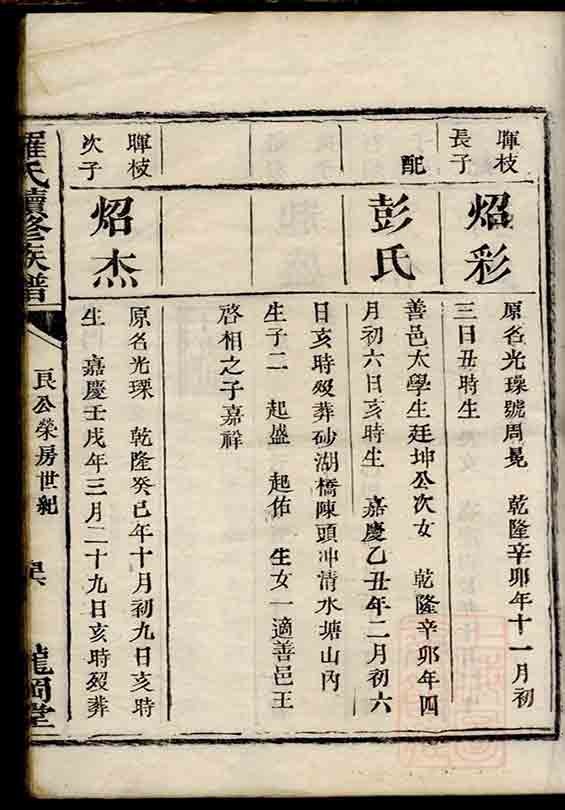 暉枝
長子
炤彩
原名光璪號周冕　乾隆辛卯年十一月初
三日丑時生
配
彭氏
善邑太學生廷坤公次女　乾隆辛卯年四
月初六日亥時生　嘉慶乙丑年二月初六
日亥時歿葬砂湖橋陳頭冲清水塘山內
生子二　起盛　起佑　生女一適善邑王
啓相之子嘉祥
暉枝
次子
炤杰
原名光瑮　乾隆癸巳年十月初九日亥時
生　嘉慶壬戌年三月二十九日亥時歿葬
羅氏續修族譜
良公榮房世紀
龍岡堂